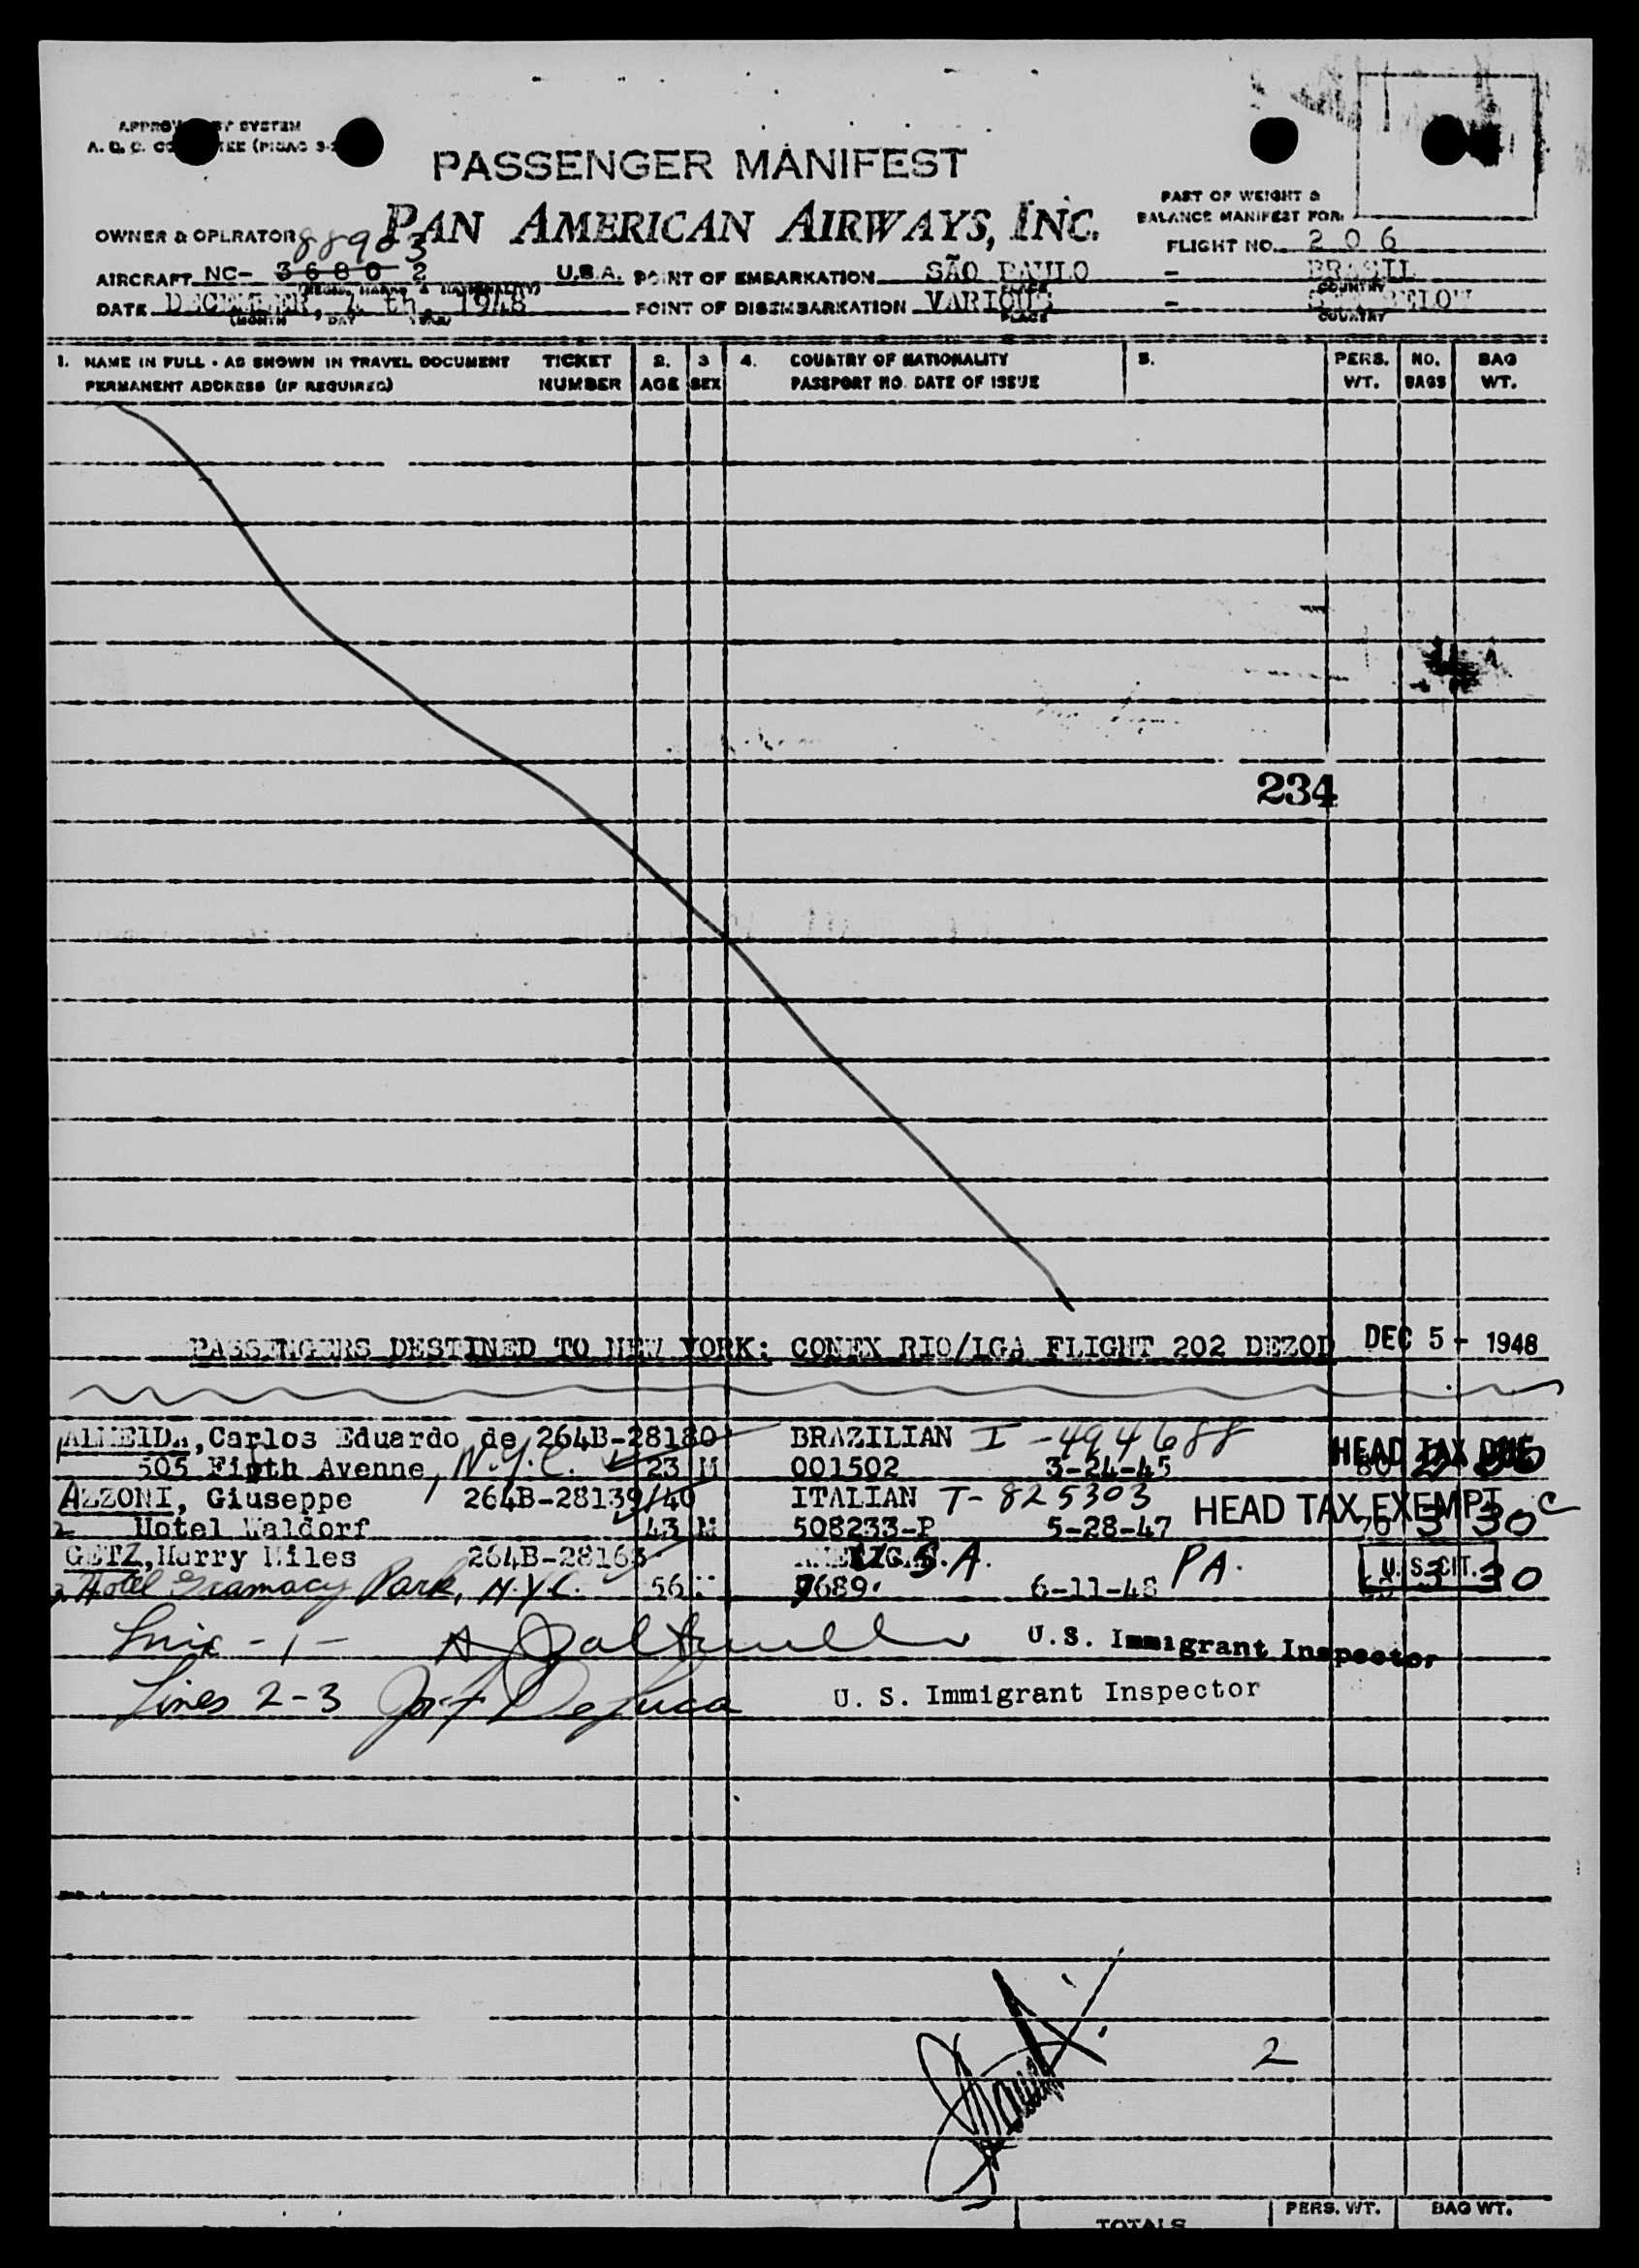 PASSENGER MANIFEST
PAN AMERICAN AIRWAYS, INC.
PART OF WEIGHT &
BALANCE MANIFEST FOR:
OWNER & OPERATOR
88903
FLIGHT NO. 206
AIRCRAFT NC- 36802 U.S.A. POINT OF EMBARKATION SÃO PAULO - BRASIL
DATE DECEMBER, 4 th, 1948 POINT OF DISEMBARKATION VARIOUS - BELOW
(MONTH DAY YEAR) PLACE COUNTRY
1. NAME IN FULL - AS SHOWN IN TRAVEL DOCUMENT TICKET 2. 3 4. COUNTRY OF NATIONALITY 5. PERS. NO. BAG
PERMANENT ADDRESS (IF REQUIRED) NUMBER AGE SEX PASSPORT NO. DATE OF ISSUE WT. BAGS WT.
234
PASSENGERS DESTINED TO NEW YORK: CONEX RIO/LGA FLIGHT 202 DEZOD DEC 5 - 1948
ALMEIDA, Carlos Eduardo de 264B-28180 BRAZILIAN I-494688
1 505 Fipth Avenne, N.Y.C. 23 M 001502 3-24-45 HEAD TAX DUE
AZZONI, Giuseppe 264B-28139/40 ITALIAN T-825303 HEAD TAX EXEMPT
2 Hotel Waldorf 43 M 508233-P 5-28-47 70 3 30 C
GETZ, Harry Miles 264B-28163 U.S.A. PA. U.S. CIT.
3 Hotel Gramacy Park, N.Y.C. 56 7689 6-11-48 3 30
Line - 1 - U.S. Immigrant Inspector
Lines 2-3 Jos F DeLuca U. S. Immigrant Inspector
2
TOTALS PERS. WT. BAG WT.